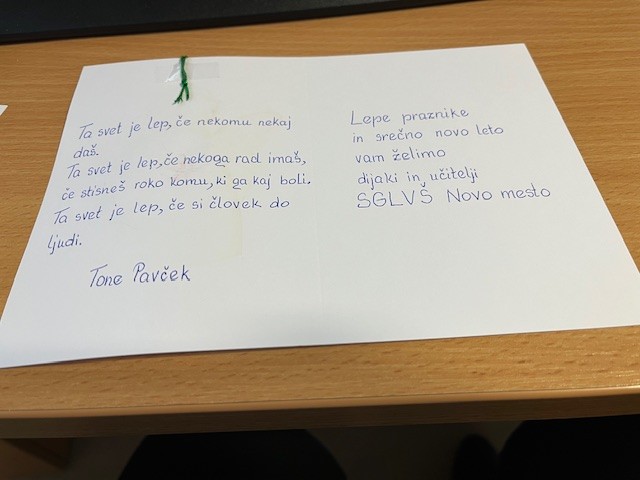 Ta svet je lep, če nekomu nekaj
daš.
Ta svet je lep, če nekoga rad imaš,
če stisneš roko komu, ki ga kaj boli.
Ta svet je lep, če si človek do
ljudi.
Tone Pavček
Lepe praznike
in srečno novo leto
vam želimo
dijaki in učitelji
SGLVŠ Novo mesto